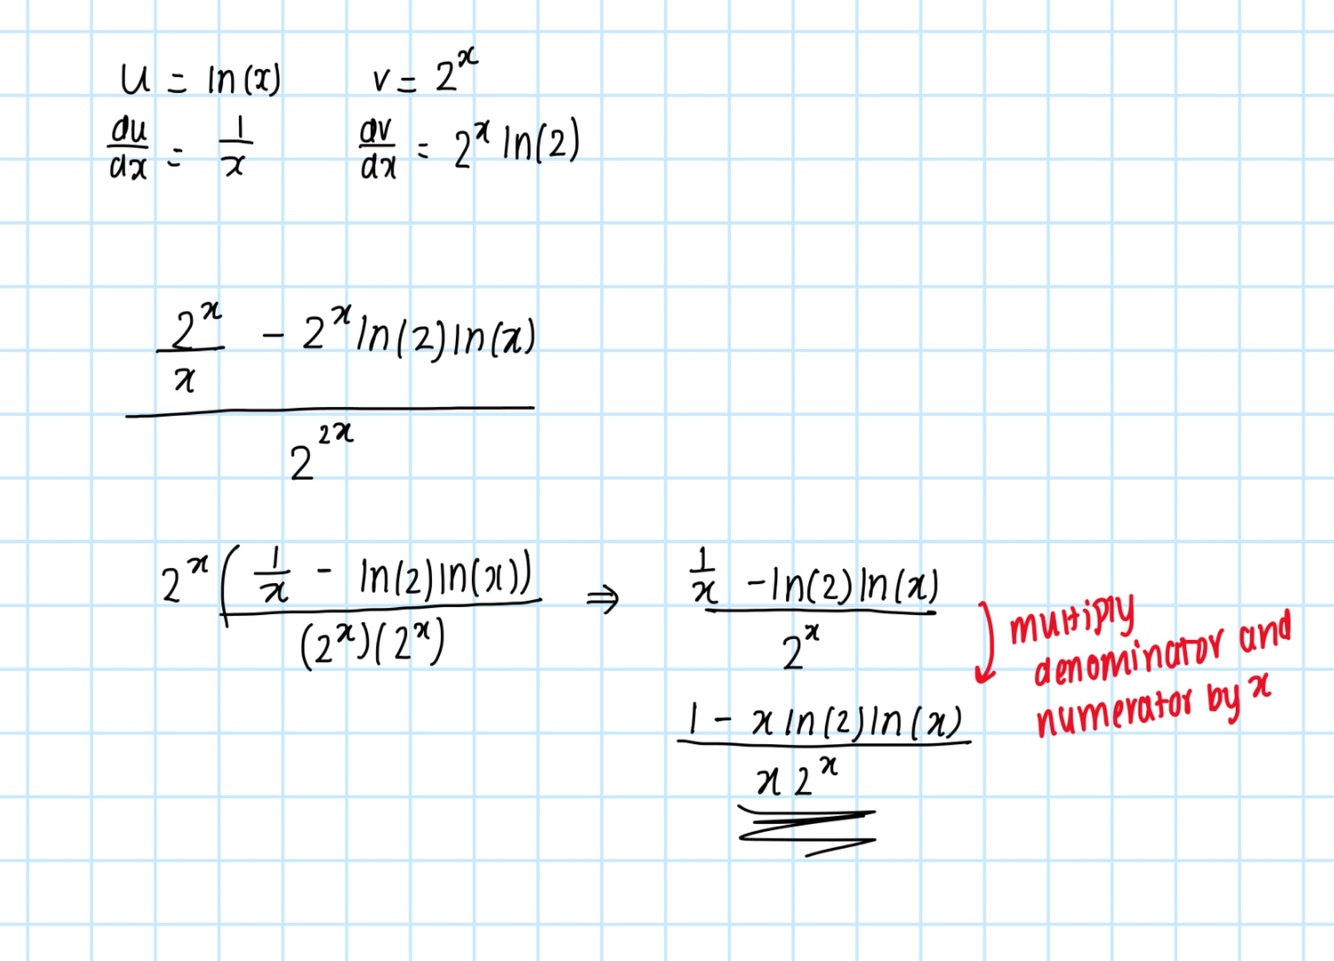 u = ln(x) v = 2^x
du/dx = 1/x dv/dx = 2^x ln(2)
(2^x/x - 2^x ln(2)ln(x))/2^2x
2^x(1/x - ln(2)ln(x))/(2^x)(2^x) ⇒ (1/x - ln(2)ln(x))/2^x
multiply
denominator and
numerator by x
(1 - x ln(2)ln(x))/x2^x